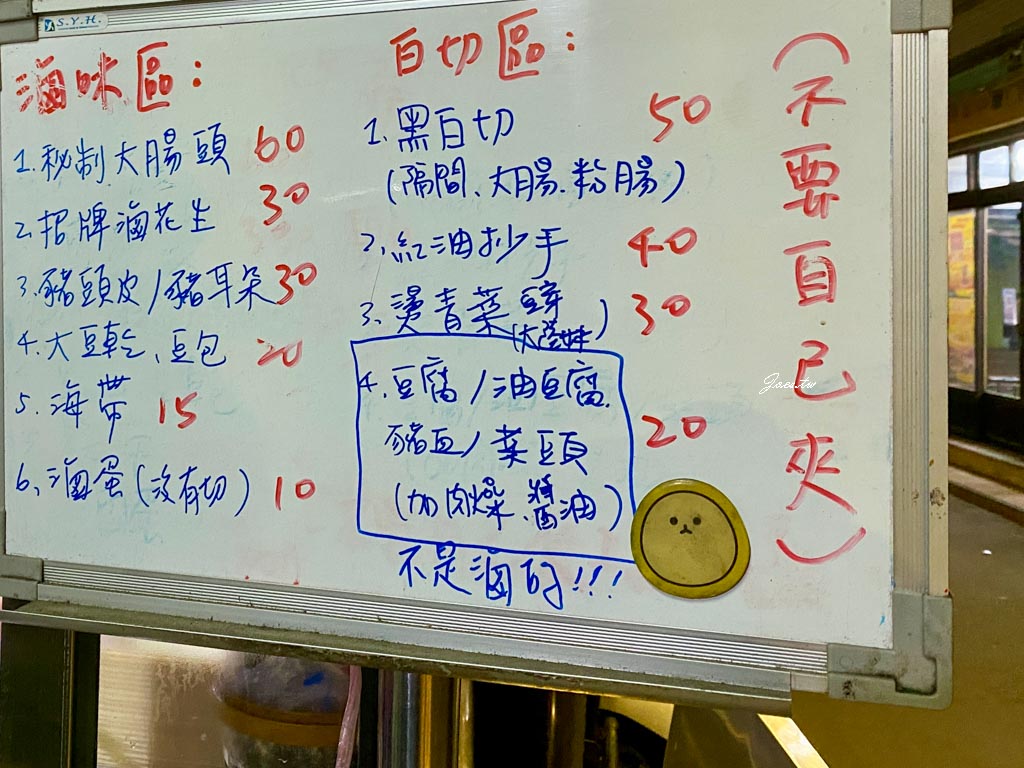 S.Y.H.
滷味區：
1.秘制大腸頭 60
2.招牌滷花生 30
3.豬頭皮/豬耳朵 30
4.大豆乾、豆包 20
5.海帶 15
6、滷蛋(沒有切) 10
白切區：
1.黑白切 50
(隔間、大腸.粉腸)
2.紅油抄手 40
3.燙青菜 豆芽 30
4.豆腐/油豆腐. 20
豬血/菜頭
(加肉燥、醬油)
不是滷的!!!
(不要自己夾)
Joes.tw